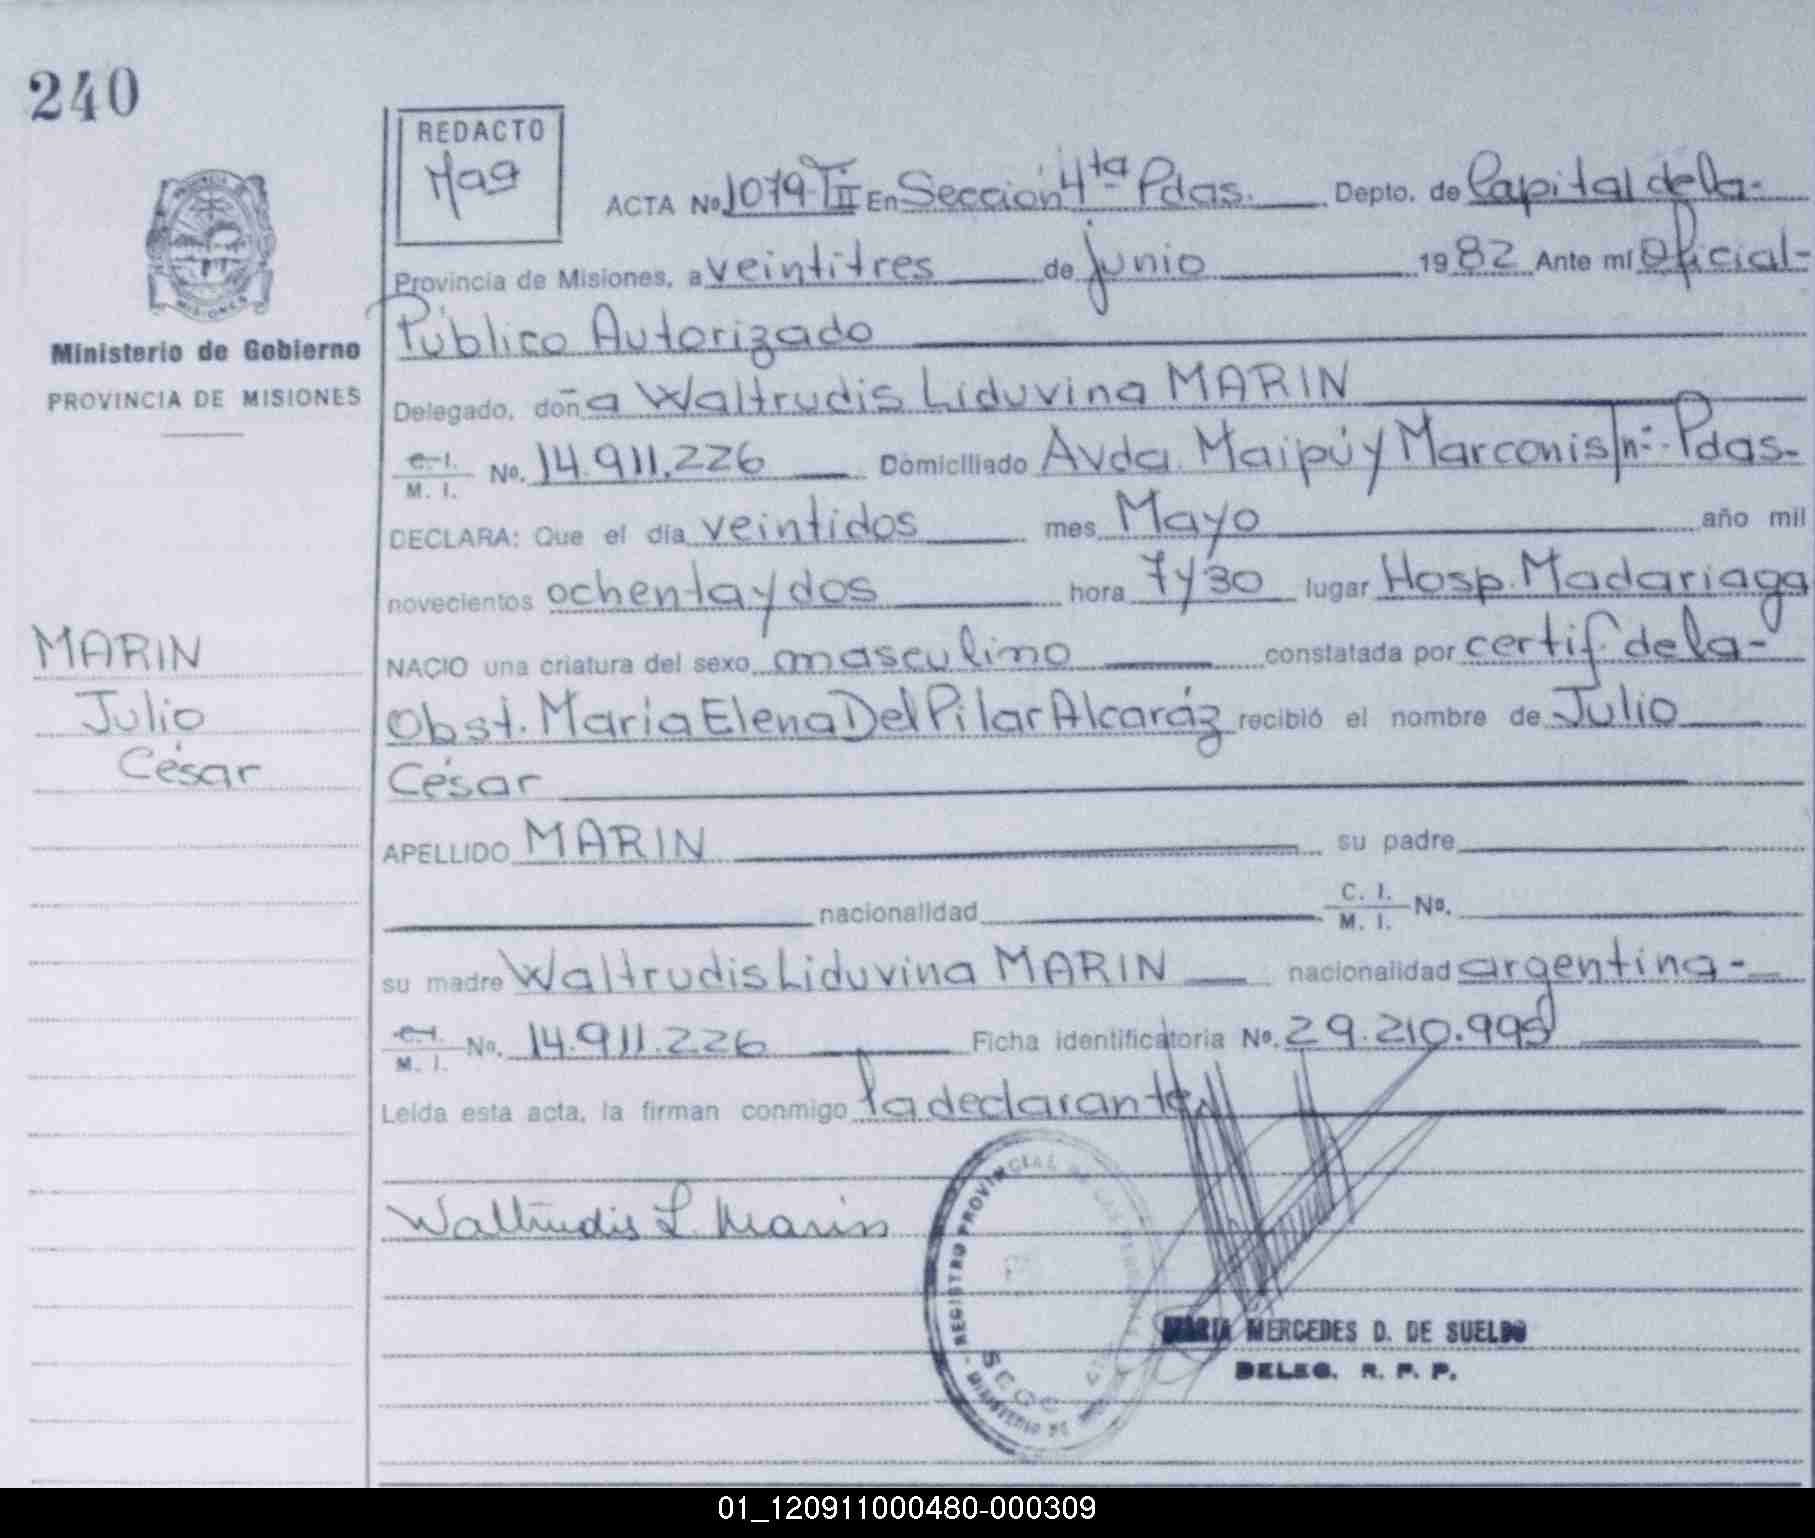 240
REDACTO
Mag
ACTA No. 1079-TII En Sección 4ta Pdas. Depto. de Capital de la-
Provincia de Misiones, a veintitres de junio 1982 Ante mí Oficial-
Público Autorizado
Ministerio de Gobierno
PROVINCIA DE MISIONES
Delegado, doña Waltrudis Liduvina MARIN
C. I.
M. I. No. 14.911.226 Domiciliado Avda. Maipú y Marconi s/nº- Pdas-
DECLARA: Que el día veintidos mes Mayo año mil
novecientos ochenta y dos hora 7 y 30 lugar Hosp. Madariaga
MARIN
Julio
César
NACIO una criatura del sexo masculino constatada por certif. de la-
Obst. María Elena Del Pilar Alcaráz recibió el nombre de Julio
César
APELLIDO MARIN su padre
nacionalidad C. I.
M. I. No.
su madre Waltrudis Liduvina MARIN nacionalidad argentina-
C. I.
M. I. No. 14.911.226 Ficha identificatoria No. 29.210.995
Leída esta acta, la firman conmigo la declarante
Waltrudis L. Marin
REGISTRO PROVINCIAL DE LAS
MINISTERIO DE
MARIA MERCEDES D. DE SUELDO
DELEG. R. P. P.
01_120911000480-000309